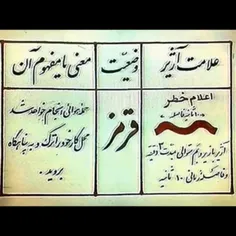 علامت آژیر
وضعیت
معنی یا مفهوم آن
اعلام خطر
۱۰ ثانیه فاصله
آژیر بازیر و بم متوالی بمدت ۳ دقیقه
و فاصله زمانی ۱۰ ثانیه
قرمز
حمله هوائی انجام خواهد شد
محل کار خود را ترک و به پناهگاه
بروید.